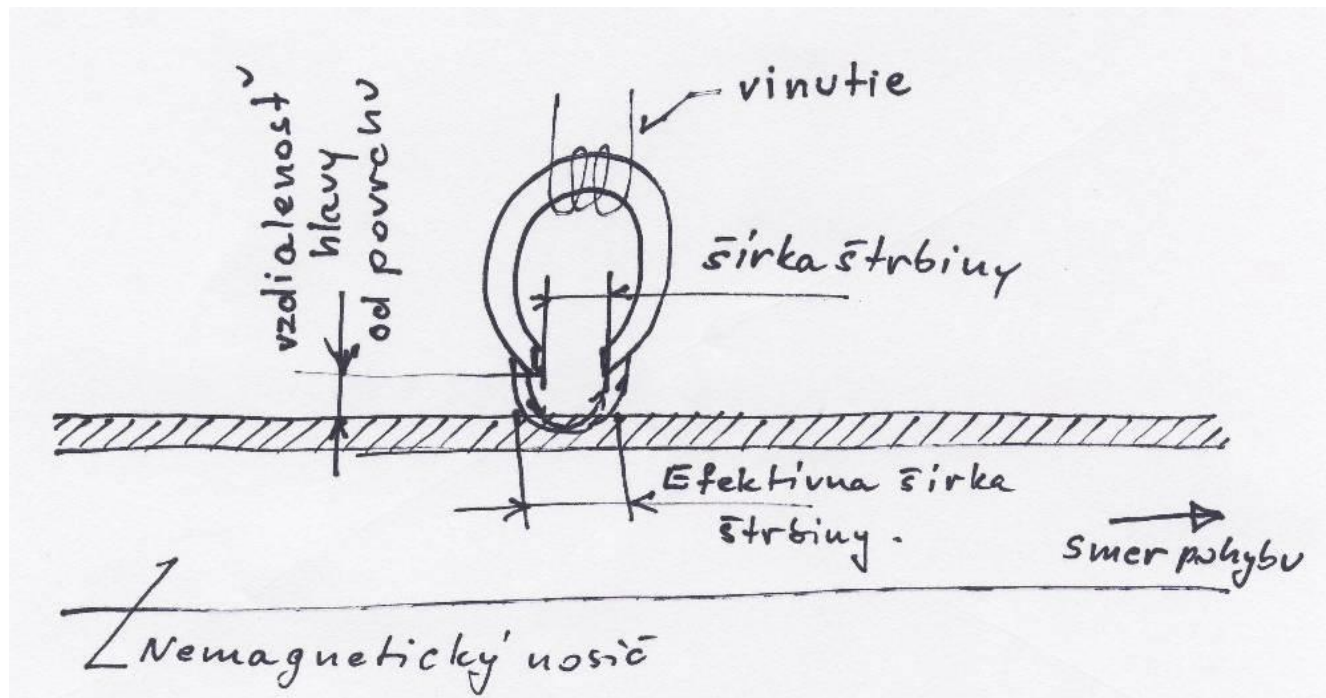 vzdialenosť
hlavy
od povrchu
vinutie
šírka štrbiny
Efektívna šírka
štrbiny.
Smer pohybu
Nemagnetický nosič